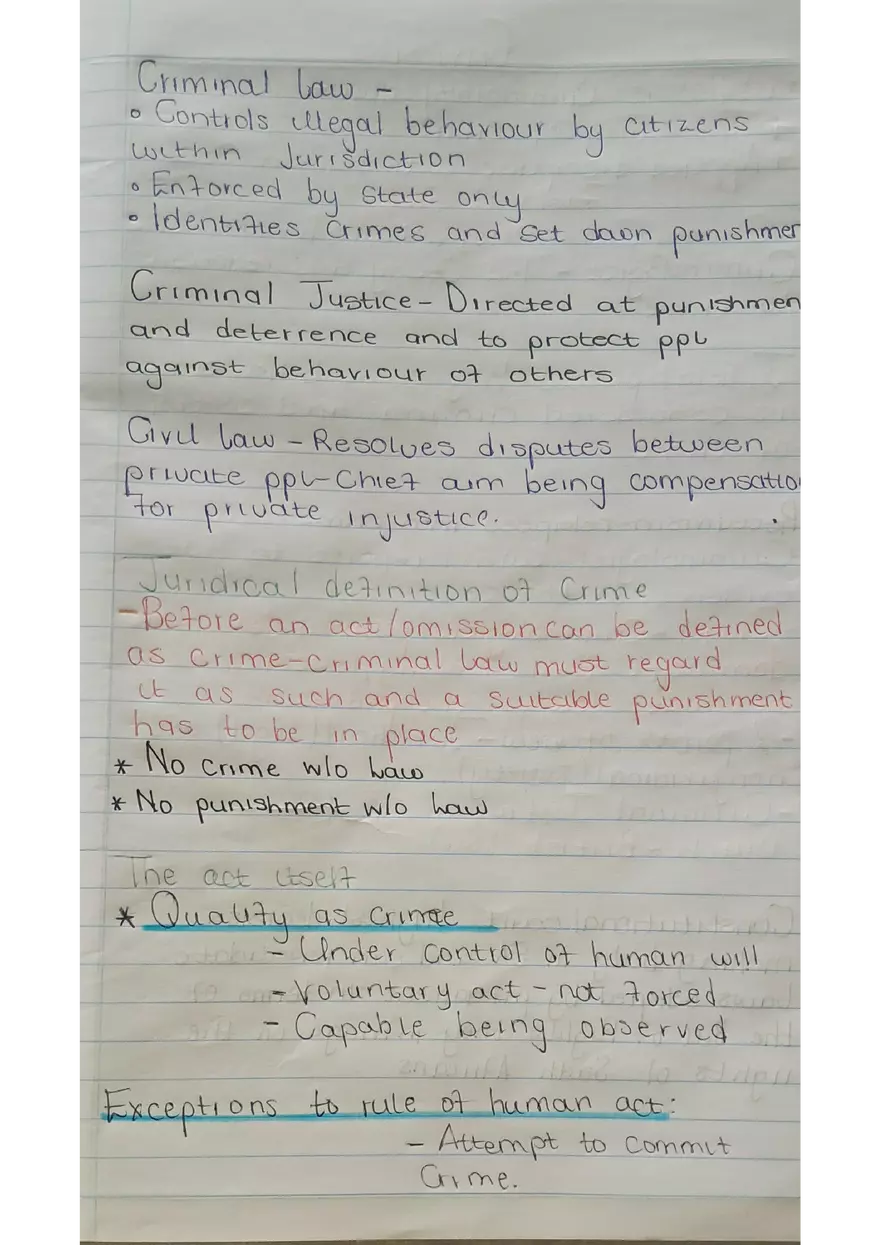 Criminal Law -
• Controls illegal behaviour by citizens
within Jurisdiction
• Enforced by State only
• Identifies Crimes and set down punishmen
Criminal Justice - Directed at punishmen
and deterrence and to protect ppl
against behaviour of others
Civil law - Resolves disputes between
private ppl - Chief aim being compensatio
for private injustice.
Juridical definition of Crime
- Before an act/omission can be defined
as crime - criminal law must regard
it as such and a suitable punishment
has to be in place
* No crime w/o Law
* No punishment w/o Law
The act itself
* Qualify as crime
- Under control of human will
- Voluntary act - not forced
- Capable being observed
Exceptions to rule of human act:
- Attempt to commit
Crime.